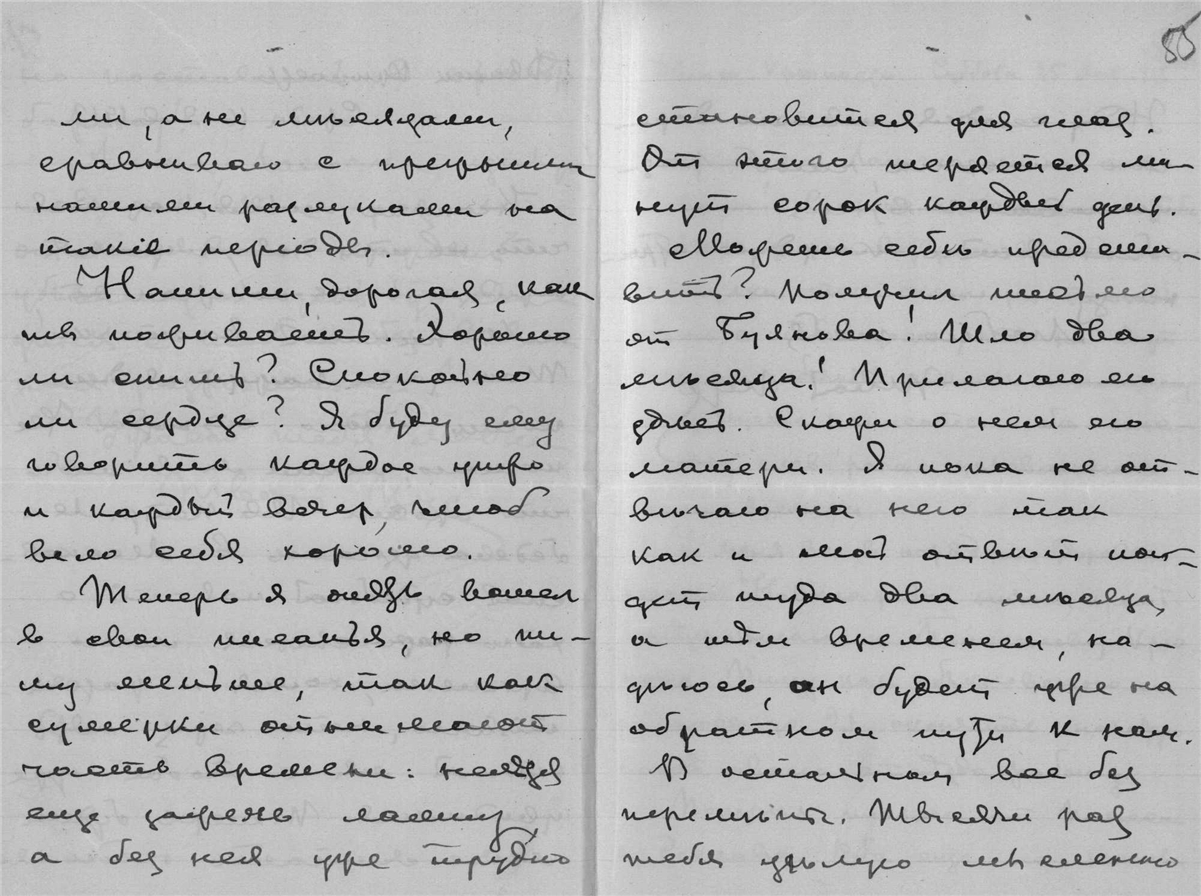 ми, а не мѣсяцами,
сравниваю с прежними
нашими разлуками на
такіе періоды.
Напиши дорогая, как
ты поживаешь. Хорошо
ли спишь? Спокойно
ли сердце? Я буду ему
говорить каждое утро
и каждый вечер, чтоб
вело себя хорошо.
Теперь я опять вошел
в свои писанья, но пи-
шу меньше, так как
сумерки отнимают
часть времени: нельзя
еще зажечь лампу,
а без нея уже трудно
85
становится для глаз.
От этого теряется ми-
нут сорок каждый день.
Можешь себѣ предста-
вить? Получил письмо
от Буянова! Шло два
мѣсяца! Прилагаю его
здѣсь. Скажи о нем его
матери. Я пока не от-
вѣчаю на него так
как и мой отвѣт пой-
дет туда два мѣсяца,
а тѣм временем, на-
дѣюсь, он будет уже на
обратном пути к нам.
В остальном все без
перемѣны. Тысячи раз
тебя цѣлую мысленно